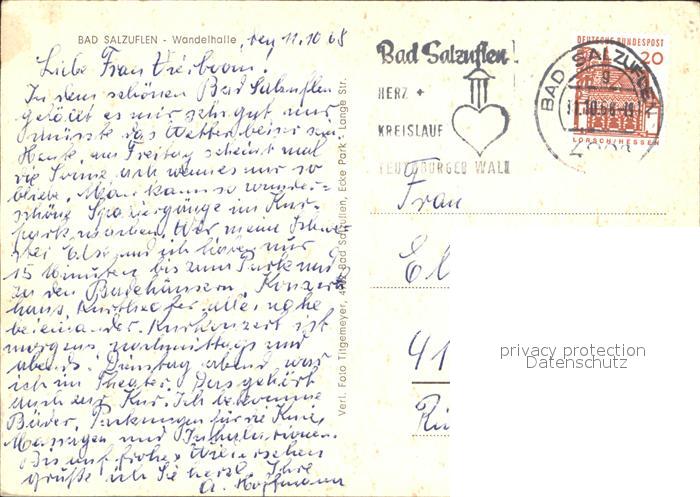 BAD SALZUFLEN - Wandelhalle, den 11.10.68
Liebe Frau
In dem schönen Bad Salzuflen
gefällt es mir sehr gut, nur
müsste das Wetter besser sein
Heute, am Freitag scheint mal
die Sonne, ach wenn es nur so
bliebe. Man kann so wunder=
schöne Spaziergänge im Kur-
park machen. Wir, meine Schwes
ter Else und ich haben nur
15 Minuten bis zum Park und
zu den Badehäusern. Konzert
haus, Kurtheater alles nahe
beieinander. Kurkonzert ist
morgens, nachmittags und
abends. Dienstag abend war
ich im Theater. Das gehört
auch zur Kur. Ich bekomme
Bäder, Packungen für die Knie,
Massagen und Inhalationen.
Bis auf frohes Wiedersehen
grüße ich Sie herzl. Ihre
A. Hoffmann
Verl. Foto Tilgemeyer, 4902 Bad Salzuflen, Ecke Park - Lange Str.
Bad Salzuflen!
HERZ +
KREISLAUF
TEUTOBURGER WALD
BAD SALZUFLEN
11.10.68
DEUTSCHE BUNDESPOST
20
LORSCH/HESSEN
Frau
El
41
privacy protection
Datenschutz